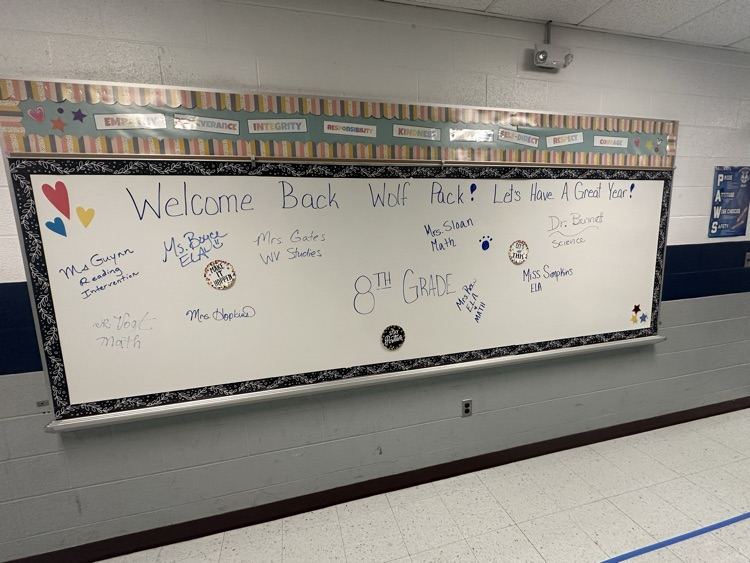 INTEGRITY
RESPONSIBILITY
KINDNESS
SELF-DIRECT
RESPECT
COURAGE
Welcome Back Wolf Pack! Let's Have A Great Year!
Ms Guynn
Reading
Intervention
Ms. Bryce
ELA
MAKE
IT
HAPPEN
Mrs Gates
WV Studies
Mrs. Sloan
Math
Dr. Bennett
Science
Miss Simpkins
ELA
8TH GRADE
ELA
MATH
Mrs. Hopkins
Mr Vort
Math
PAWS